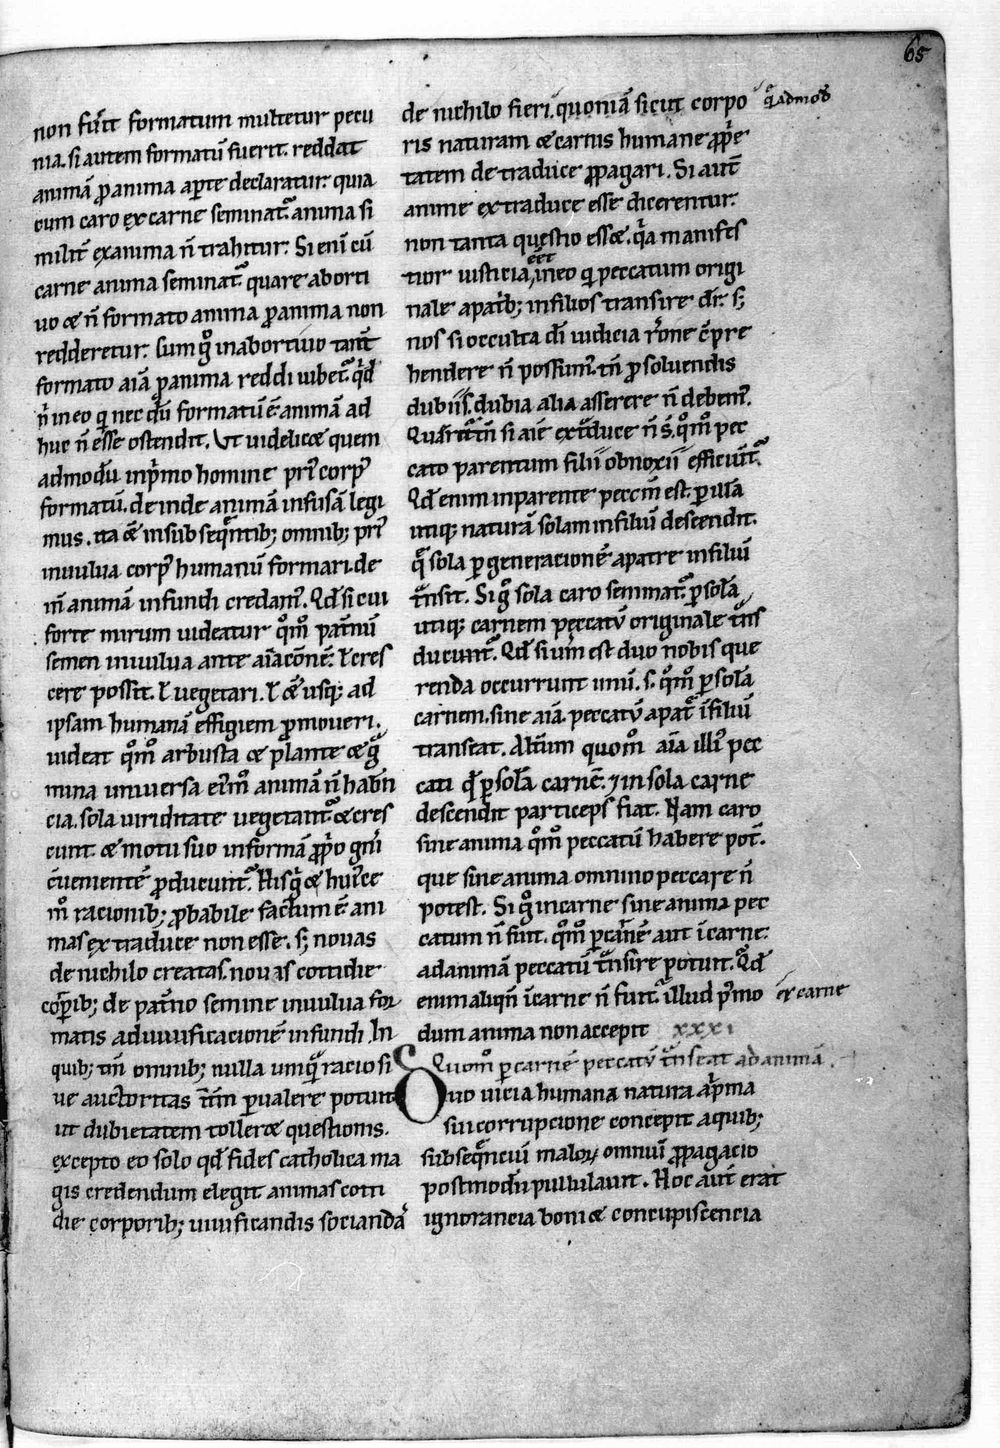 65
non fuit formatum multetur pecu
nia. si autem formatū fuerit. reddat
animā ꝓ anima aꝑte declaratur quia
cum caro ex carne seminat᷑ anima si
milit̄ ex anima n̄ trahitur. Si eni cū
carne anima seminat᷑ quare aborti
uo & n̄ formato anima ꝓ anima non
redderetur. Cum gͦ in abortiuo tant̄
formato aīā ꝓ anima reddi iubet᷑
in eo nec formatū ē animā ad
huc n̄ esse ostendit. Vt uidelicet quem
admodū in pͥmo homine priꝰ corpꝰ
formatū. deinde animā infusā legi
mus. ita & in subseq̄ntib; omnib; priꝰ
in uulua corpꝰ humanū formari. de
in̄ animā infundi credamꝰ. Qd̄ si cui
forte mirum uideatur qͦmͦ pat̄nū
semen in uulua ante aīacōnē. ł cres
cere possit. ł uegetari. ł usq; ad
ipsam humanā effigiem ꝓmoueri.
uideat qͦmͦ arbusta & plante & gͣ
mina uniuersa etmͦ animā n̄ habn̄
cia. sola uiriditate uegetant᷑ & cres
cunt. & motu suo in formā ꝓpͥo gn̄i
ꝯuenientē ꝓducunt᷑. His gͣ & huiꝰce
mͦ racionib; ꝓbabile factum ē ani
mas ex traduce non esse. s; nouas
de nichilo creatas nouis cottidie
corꝑib; de pat̄no semine in uulua for
matis ad uiuificacionē infundi. In
quib; tn̄ omnib; nulla umq̄ racio si
ue auctoritas tm̄ p̄ualere potuit
ut dubietatem tolleret questionis.
excepto eo solo qd̄ fides catholica ma
gis credendum elegit animas cotti
die corporib; uiuificandis sociandaͣ
de nichilo fieri. quoniā sicut corpo
qͣadmod̄
ris naturam & carnis humane ꝓpͥe
tatem de traduce ꝓpagari. Si aut̄
anime ex traduce esse dicerentur.
non tanta questio ess&. qͥa manifes
tior iusticia eēt in eo qͥ peccatum origi
nale a patrib; in filios transire dr̄. s;
nos si occulta dī iudicia rōne ꝯpre
hendere n̄ possumꝰ. tn̄ ꝓ soluendis
dubiis. dubia alia asserere n̄ debemꝰ.
si aīe ex t̄duce n̄ s̄. qͦmͦ pec
cato parentum filii obnoxii efficiūt᷑.
Qd̄ enim in parente peccm̄ est. ꝑ illā
utiq; naturā solam in filiū descendit.
q̄ sola ꝑ generacionē a patre in filiū
t̄nsit. Si gͦ sola caro seminat᷑. ꝑ solā
utiq; carnem peccatū originale t̄ns
ducunt᷑. Qd̄ si uerū est duo nobis que
renda occurrunt unū. s. qͦmͦ ꝑ solā
carnem. sine aīā. peccatū a patͥ ī filiū
transeat. Alt̄um quomͦ aīa illiꝰ pec
cati qͥ ꝑ solā carnē. ⁊ in sola carne
descendit particeps fiat. Nam caro
sine anima qͦmͦ peccatū habere pot̄.
que sine anima omnino peccare n̄
potest. Si gͦ in carne sine anima pec
catum n̄ fuit. qͦmͦ ꝑ carnē aut ī carne
ad animā peccatū t̄nsire potuit. Qd̄
enim aliqn̄ ī carne n̄ fuit. illud pͥmo
ex carne
dum anima non accepit xxxi
Quomͦ ꝑ carnē peccatū t̄nseat ad animā.
Duo uicia humana natura a pͥma
sui corrupcione concepit a quib;
subseq̄ncium maloꝝ omniū ꝓpagacio
postmodū pullulauit. Hoc aut̄ erat
ignorancia boni & concupiscencia